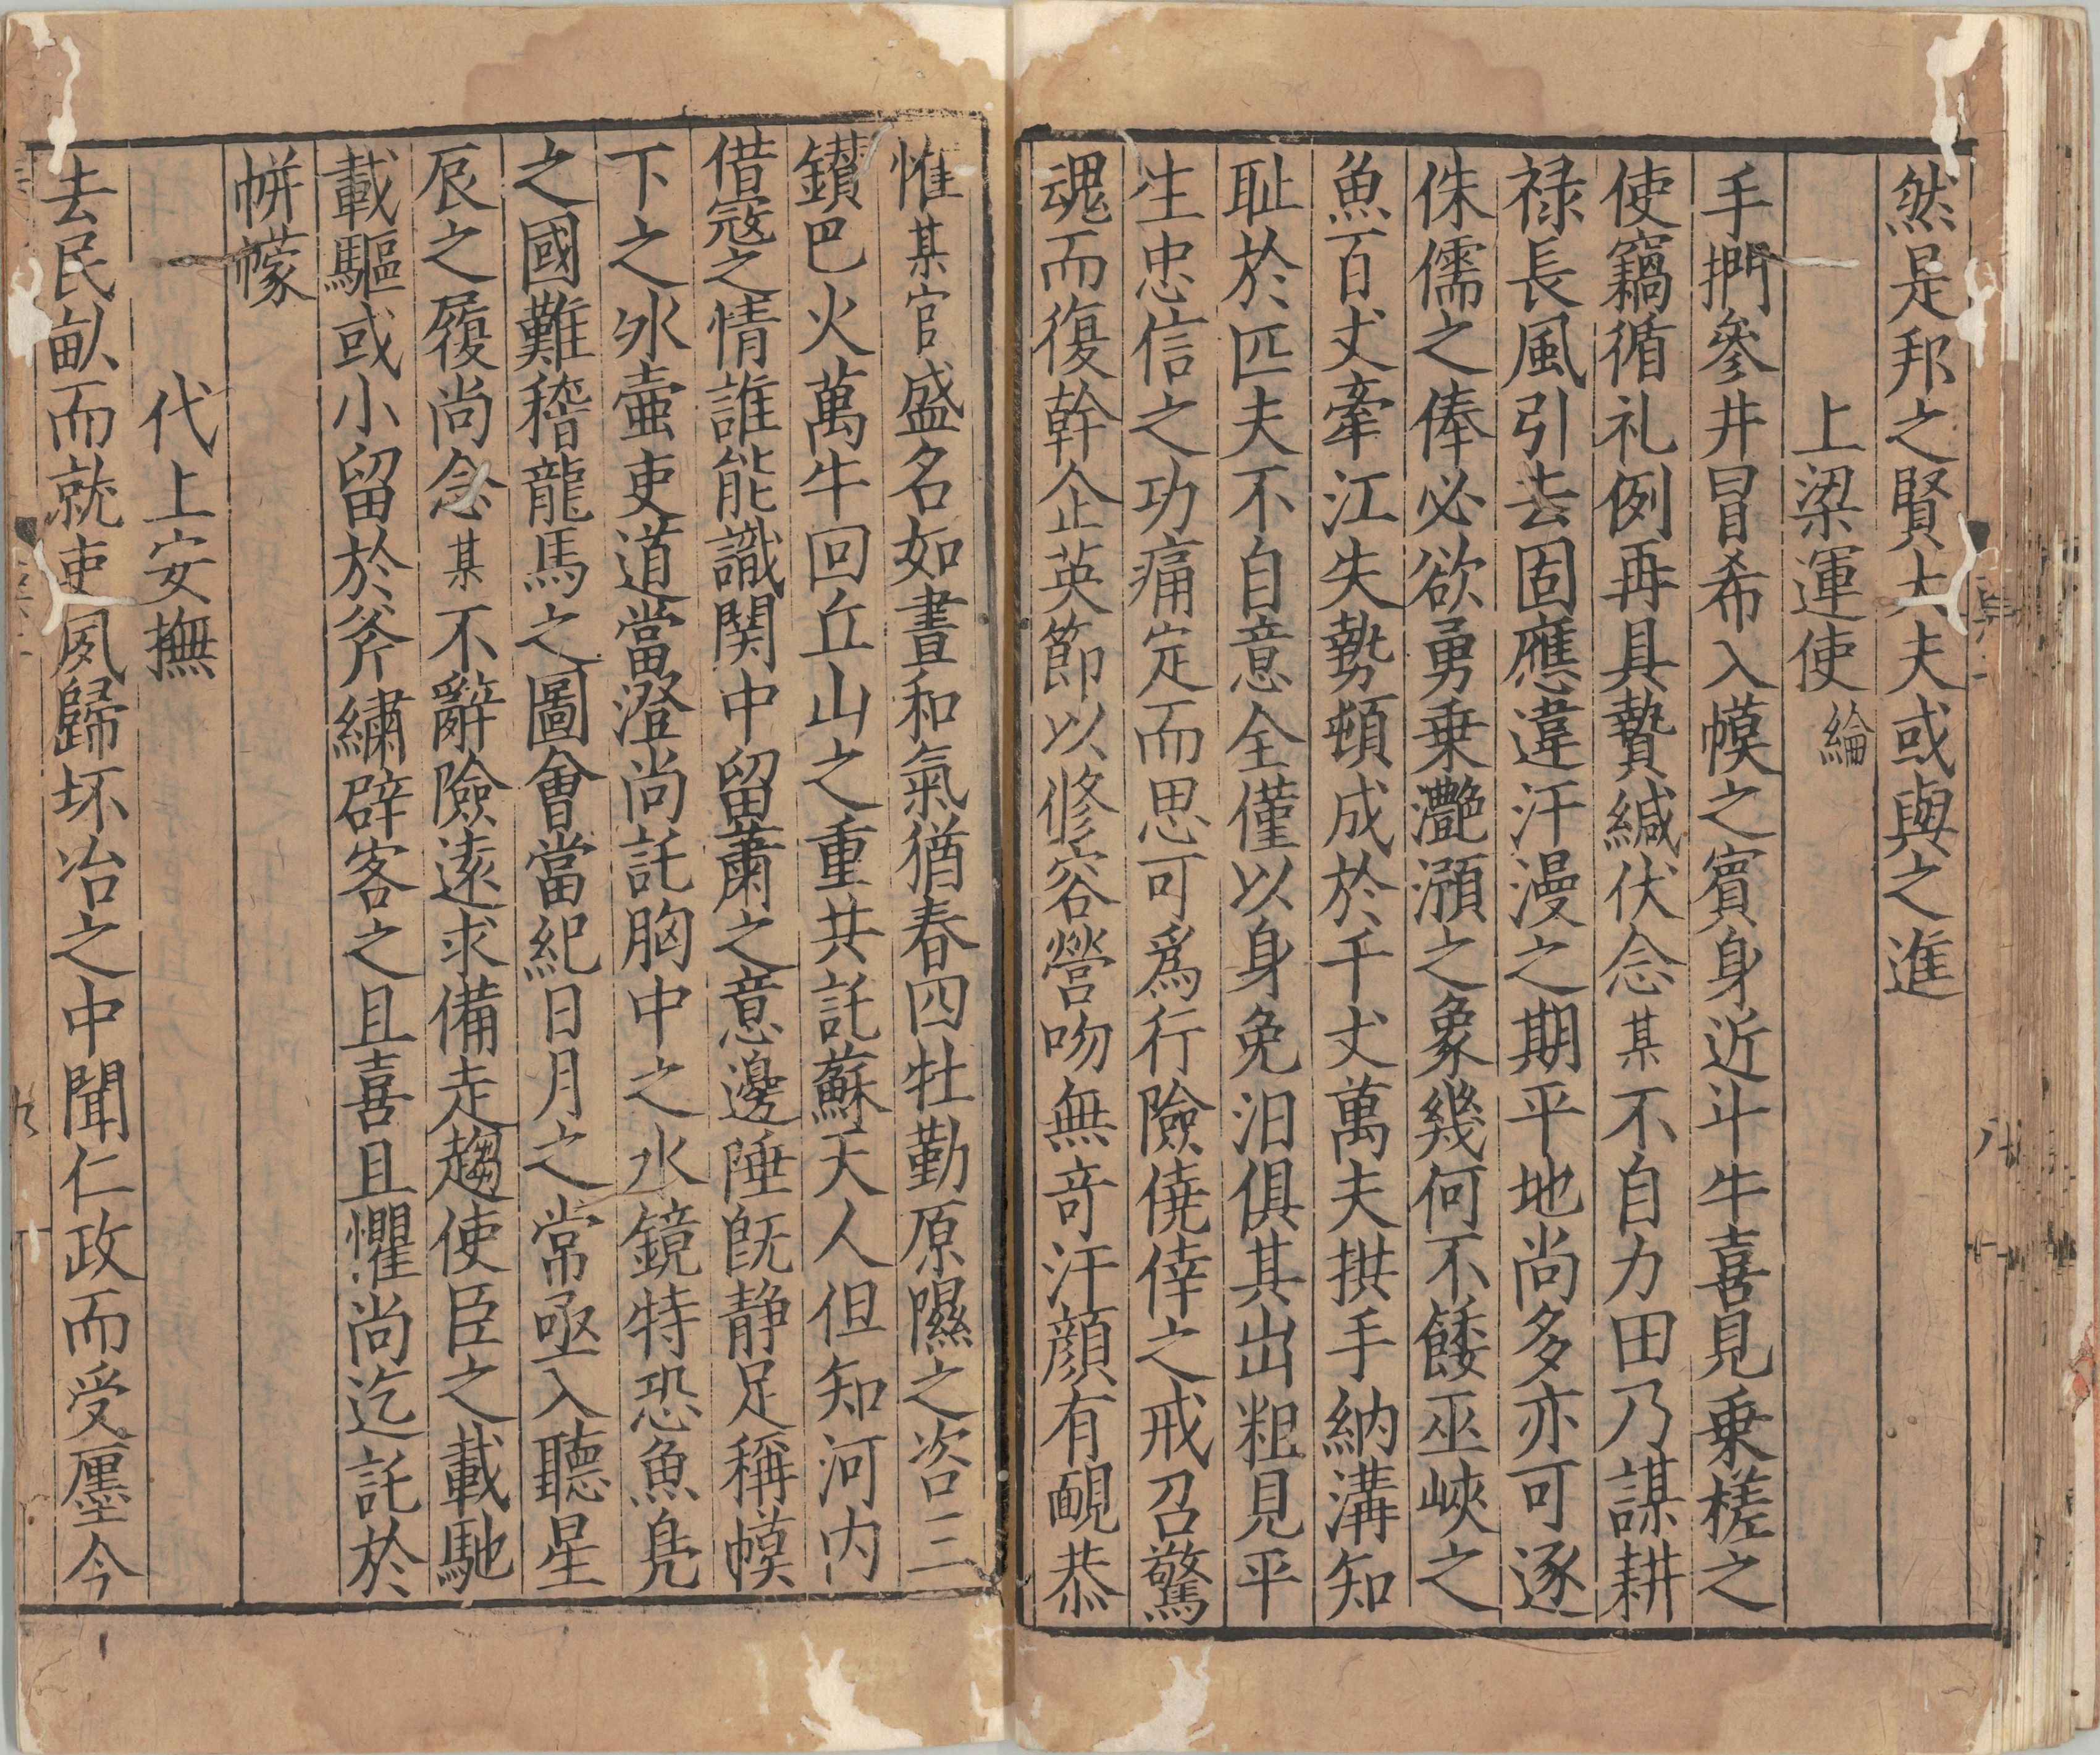 然是邦之賢大夫或與之進
上梁運使綸
手捫參井冒希入幙之賓身近斗牛喜見乗槎之
使竊循礼例再具贄緘伏念某不自力田乃謀耕
禄長風引去固應違汗漫之期平地尚多亦可逐
侏儒之俸必欲勇乗灧澦之象幾何不餧巫峽之
魚百丈牽江失勢頓成於千丈萬夫拱手納溝知
耻於匹夫不自意全僅以身免汨俱其出粗見平
生忠信之功痛定而思可爲行險僥倖之戒召驚
魂而復幹企英節以修容營吻無竒汗顔有靦恭
惟某官盛名如晝和氣猶春四牡勤原隰之咨三
鑚巴火萬牛回丘山之重共託蘇天人但知河内
借寇之情誰能識関中留蕭之意邊陲旣静足稱幙
下之氷壷吏道當澄尚託胸中之水鏡特恐魚凫
之國難稽龍馬之圖會當紀日月之常亟入聽星
辰之履尚念某不辭險遠求備走趨使臣之載馳
載驅或小留於斧繡辟客之且喜且懼尚迄託於
帡幪
代上安撫
去民畝而就吏夙歸坏冶之中聞仁政而受廛今